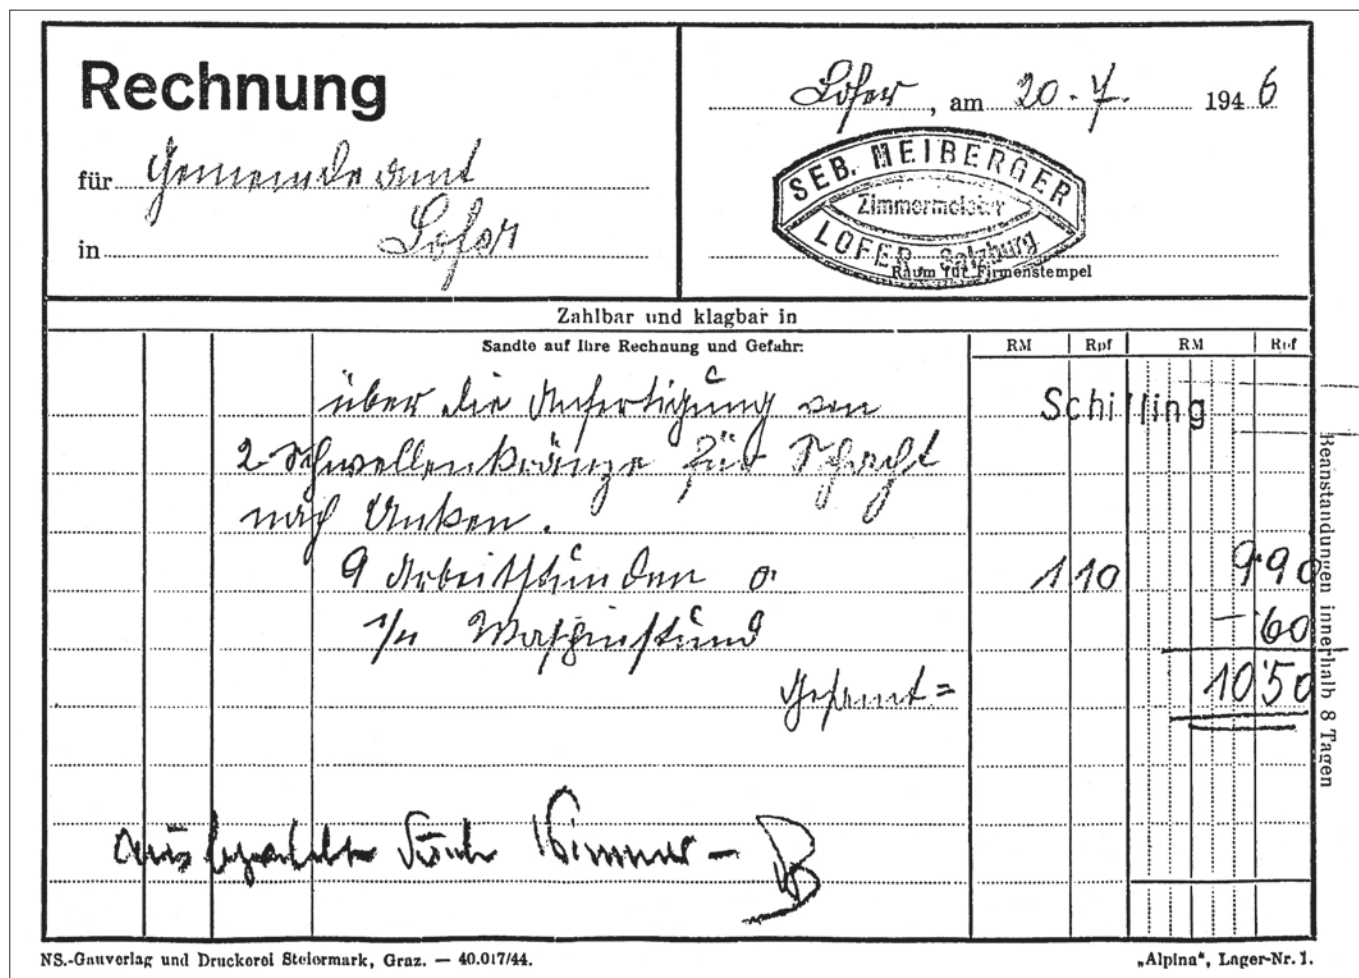 Rechnung
für Gemeindeamt
in Lofer
Lofer, am 20. 7. 1946
SEB. MEIBERGER
Zimmermeister
LOFER Salzburg
Raum für Firmenstempel
Zahlbar und klagbar in
Sandte auf Ihre Rechnung und Gefahr:
RM Rpf RM Rpf
über die Anfertigung von
Schilling
2 Schwellenkränze für Schacht
nach Unken.
9 Arbeitsstunden a 1 10 9 90
Maschinstund – 60
Gesamt = 10 50
Beanstandungen innerhalb 8 Tagen
NS.-Gauverlag und Druckerei Steiermark, Graz. — 40.017/44.
„Alpina“, Lager-Nr. 1.